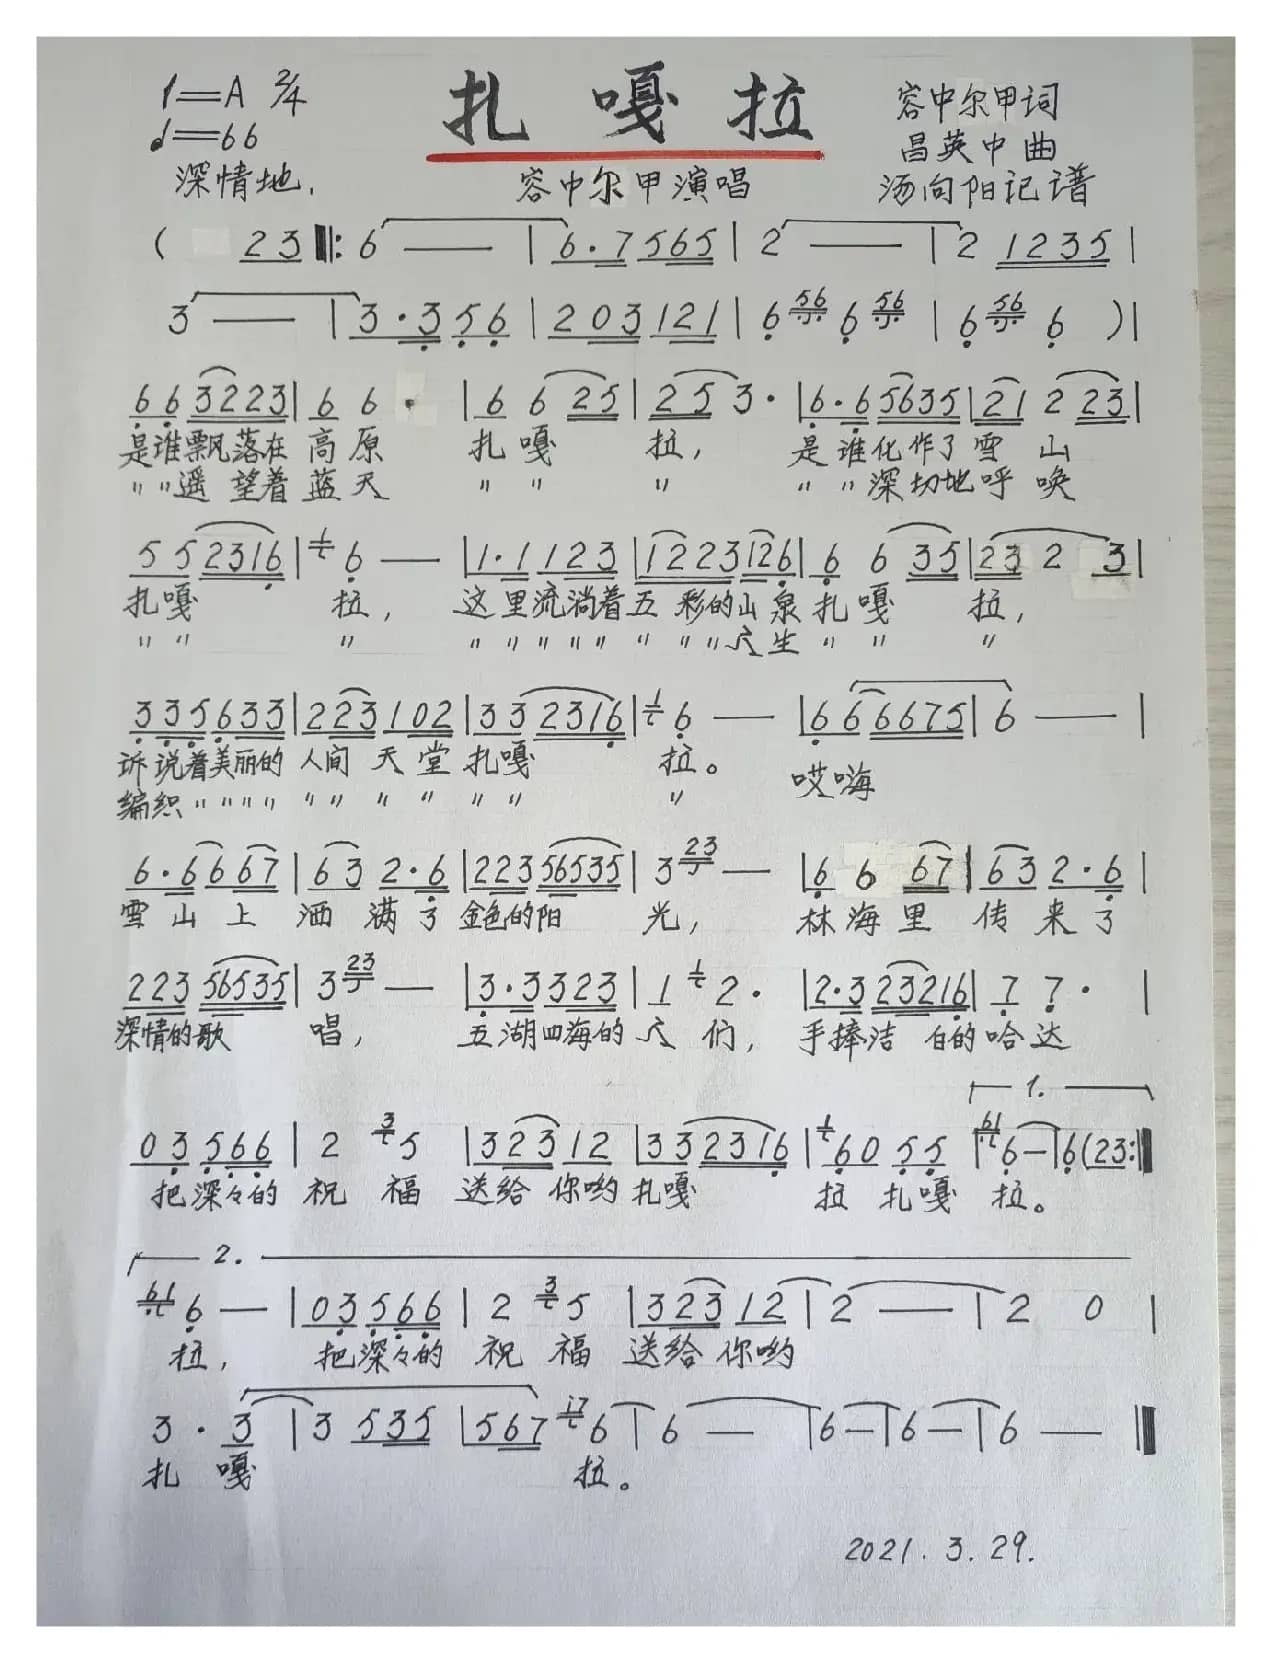 1=A 2/4
扎嘎拉
容中尔甲词
♩=66
昌英中曲
深情地.
容中尔甲演唱
汤向阳记谱
( 23 ‖: 6 — | 6·7 565 | 2 — | 2 1235 |
3 — | 3·3 56 | 203 121 | 6 56 6 56 | 6 56 6 )|
66 3223 | 6 6· | 6 6 25 | 25 3· | 6·6 5635 | 21 2 23 |
是谁飘落在 高原 扎嘎 拉, 是谁化作了雪 山
〃〃遥望着 蓝天 〃〃 〃 〃〃深切地呼 唤
55 2316 | 1 6 — | 1·1 123 | 1223 126 | 6 6 35 | 23 2 3 |
扎嘎 拉, 这里流淌着五彩的山泉 扎嘎 拉,
〃〃 〃 〃〃〃〃〃〃〃〃众生 〃〃 〃
335633 | 223 102 | 33 2316 | 1 6 — | 66 6675 | 6 — |
诉说着美丽的 人间 天堂 扎嘎 拉。 哎嗨
编织〃〃〃〃 〃〃 〃〃 〃〃 〃
6·66 67 | 63 2·6 | 223 56535 | 3 23 — | 6 6 67 | 63 2·6 |
雪山上 洒满了 金色的阳 光, 林海里 传来了
223 56535 | 3 23 — | 3·3 323 | 1 1 2· | 2·3 23216 | 7 7· |
深情的歌 唱, 五湖四海的 人们, 手捧洁白的哈达
1.
03 566 | 2 3 5 | 323 12 | 33 2316 | 1 60 55 | 61 6 — | 6 (23 :‖
把深々的 祝福 送给 你哟 扎嘎 拉 扎嘎 拉。
2.
61 6 — | 03 566 | 2 3 5 | 323 12 | 2 — | 2 0 |
拉, 把深々的 祝福 送给 你哟
3·3 | 3 535 | 567 17 6 | 6 — | 6 — | 6 — | 6 — ‖
扎嘎 拉。
2021.3.29.